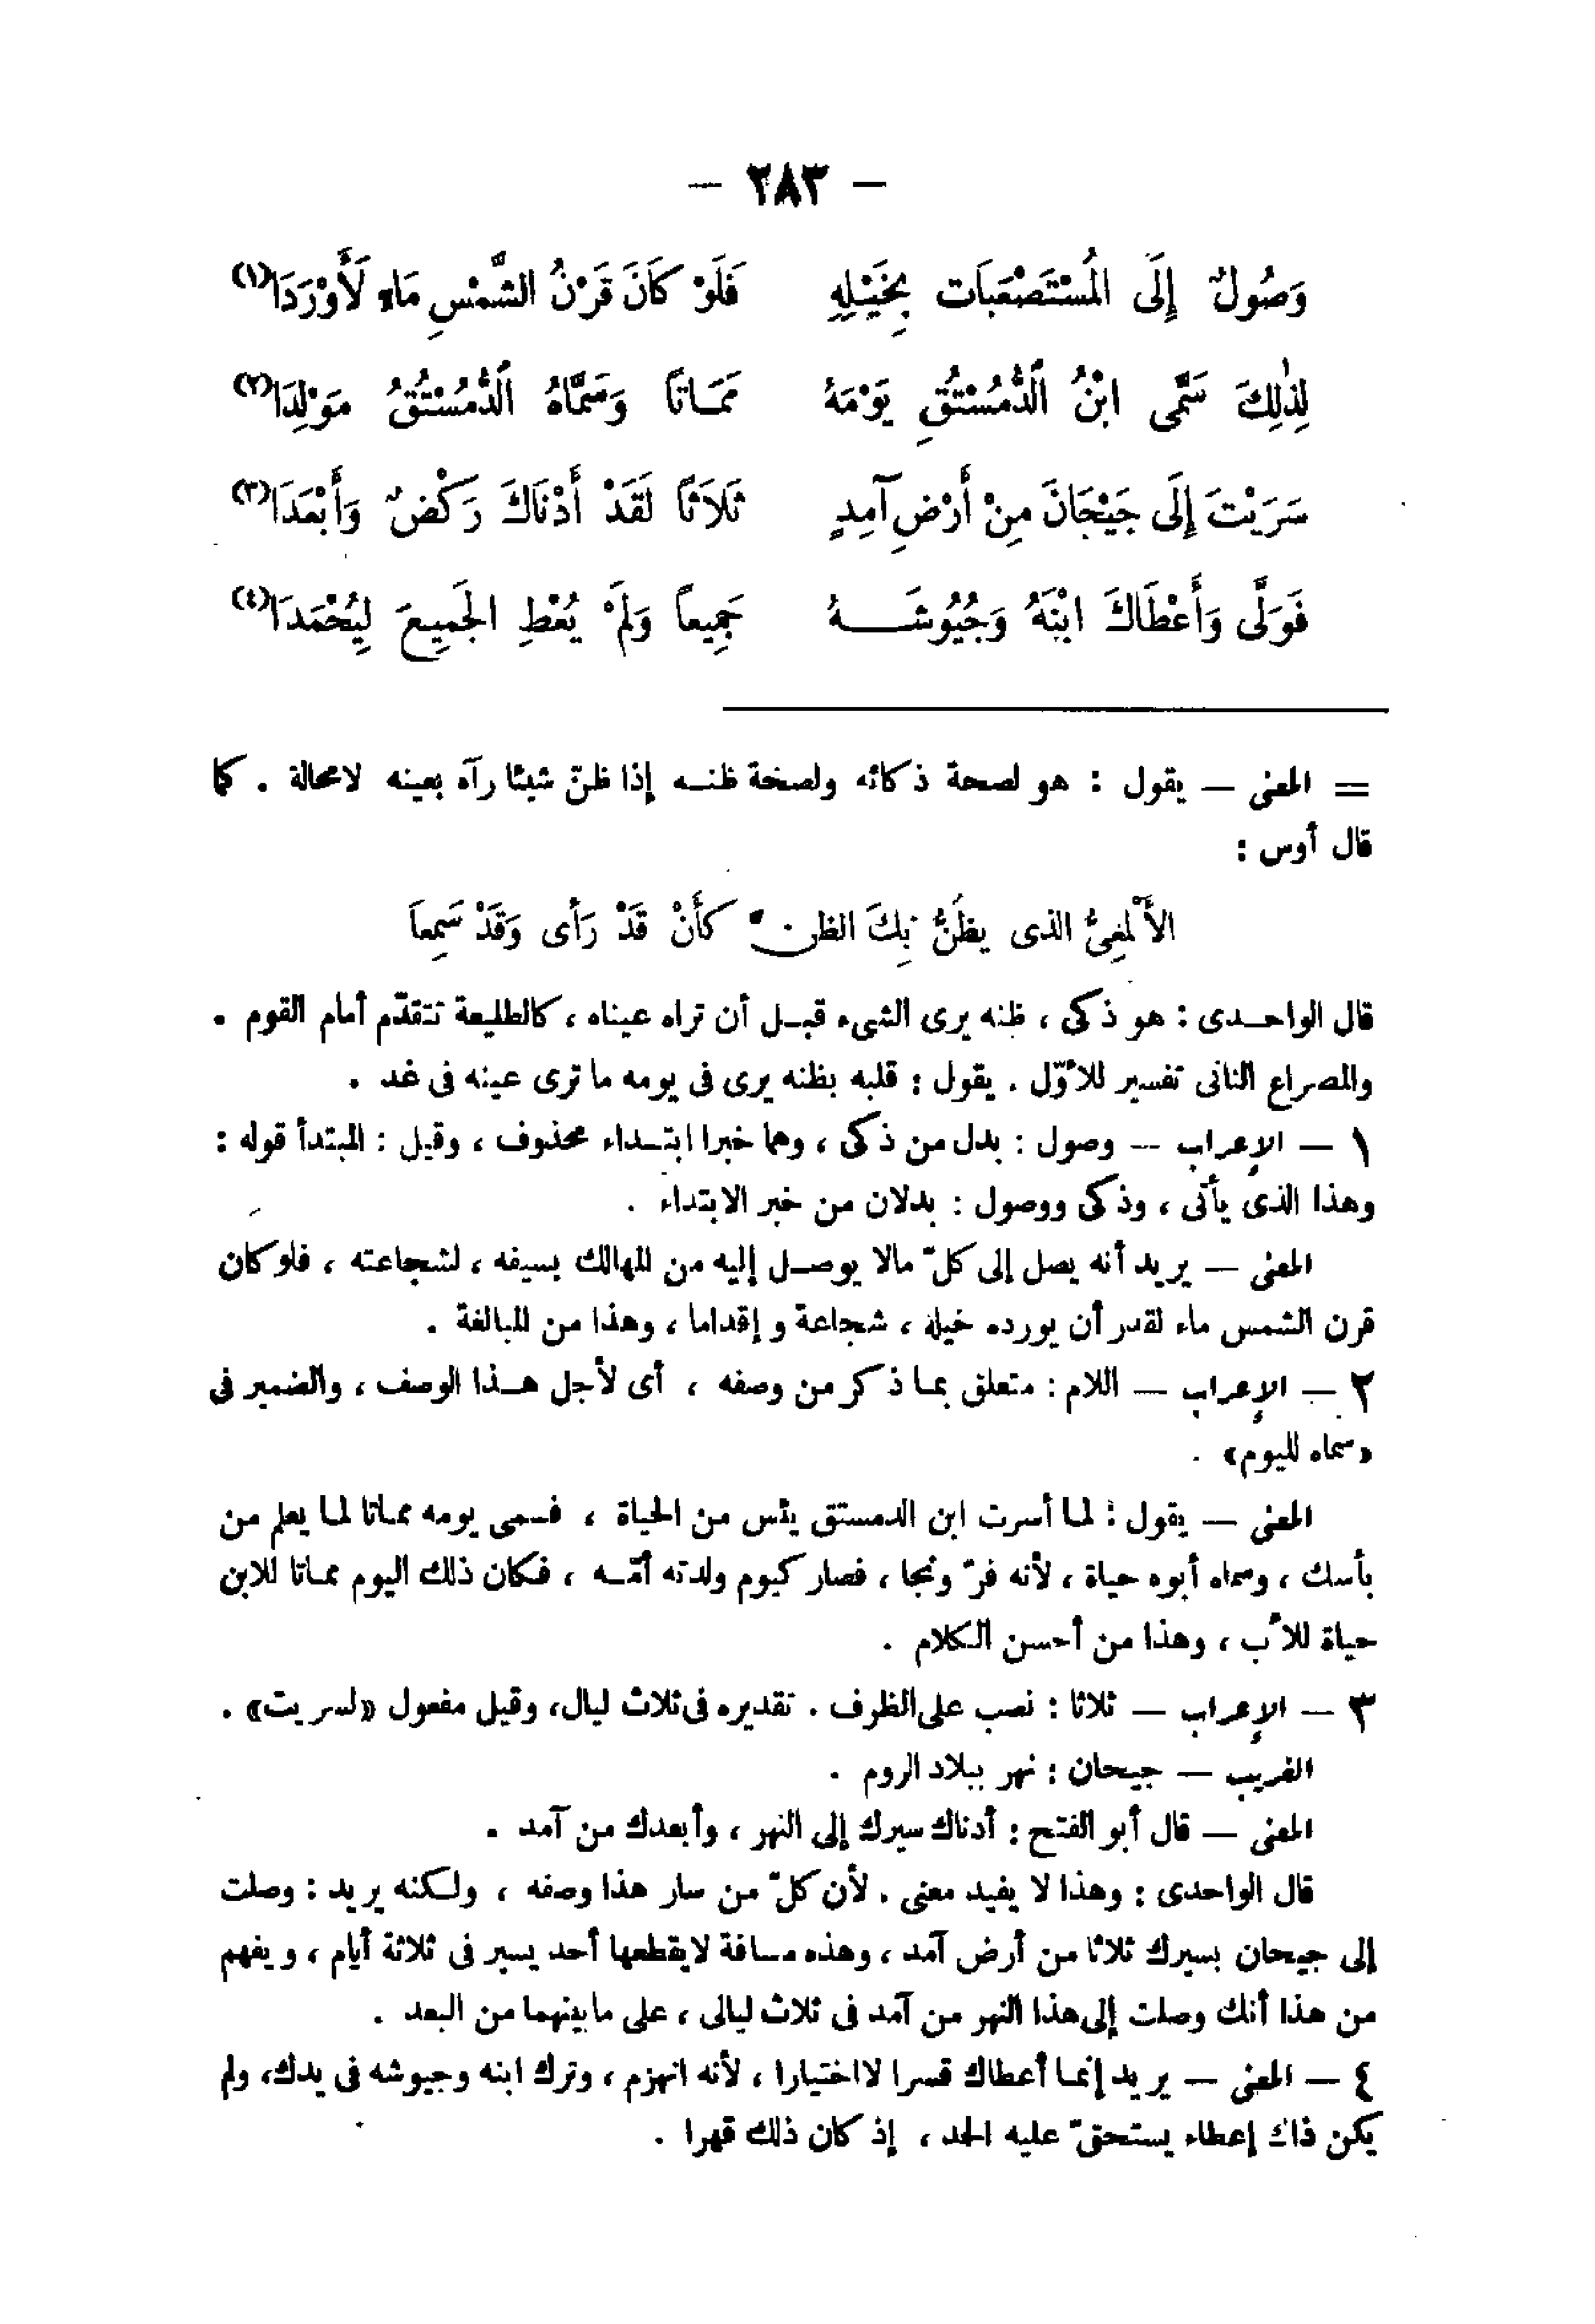 — ٢٨٣ —
وَصُولٌ إِلَى الْمُسْتَصْعَبَاتِ بِخَيْلِهِ فَلَوْ كَانَ قَرْنُ الشَّمْسِ مَاءً لَأَوْرَدَا(١)
لِذٰلِكَ سَمَّى ابْنُ الدُّمُسْتُقِ يَوْمَهُ مَمَاتًا وَسَمَّاهُ الدُّمُسْتُقُ مَوْلِدَا(٢)
سَرَيْتَ إِلَى جَيْحَانَ مِنْ أَرْضِ آمِدٍ ثَلَاثًا لَقَدْ أَدْنَاكَ رَكْضٌ وَأَبْعَدَا(٣)
فَوَلَّى وَأَعْطَاكَ ابْنَهُ وَجُيُوشَهُ جَمِيعاً وَلَمْ يُعْطِ الْجَمِيعَ لِيُحْمَدَا(٤)
= المعنى — يقول : هو لصحة ذكائه ولصحة ظنه إذا ظنّ شيئا رآه بعينه لا محالة . كما
قال أوس :
الأَلْمَعِىُّ الذى يظَنُّ بِكَ الظن كأَنْ قَدْ رَأى وَقَدْ سَمِعاَ
قال الواحدى : هو ذكى ، ظنه يرى الشىء قبل أن تراه عيناه ، كالطليعة تتقدّم أمام القوم .
والمصراع الثانى تفسير للأوّل . يقول : قلبه بظنه يرى فى يومه ما ترى عينه فى غد .
١ — الإعراب — وصول : بدل من ذكى ، وهما خبرا ابتداء محذوف ، وقيل : المبتدأ قوله :
وهذا الذى يأتى ، وذكى ووصول : بدلان من خبر الابتداء .
المعنى — يريد أنه يصل إلى كلّ مالا يوصل إليه من المهالك بسيفه ، لشجاعته ، فلو كان
قرن الشمس ماء لقدر أن يورده خيله ، شجاعة وإقداما ، وهذا من المبالغة .
٢ — الإعراب — اللام : متعلق بما ذكر من وصفه ، أى لأجل هذا الوصف ، والضمير فى
«سماه لليوم» .
المعنى — يقول : لما أسرت ابن الدمستق يئس من الحياة ، فسمى يومه مماتا لما يعلم من
بأسك ، وسماه أبوه حياة ، لأنه فرّ ونجا ، فصار كيوم ولدته أمّه ، فكان ذلك اليوم مماتا للابن
حياة للأب ، وهذا من أحسن الكلام .
٣ — الإعراب — ثلاثا : نصب على الظرف . تقديره فى ثلاث ليال، وقيل مفعول «لسريت» .
الغريب — جيحان : نهر ببلاد الروم .
المعنى — قال أبو الفتح : أدناك سيرك إلى النهر ، وأبعدك من آمد .
قال الواحدى : وهذا لا يفيد معنى . لأن كلّ من سار هذا وصفه ، ولكنه يريد : وصلت
إلى جيحان بسيرك ثلاثا من أرض آمد ، وهذه مسافة لا يقطعها أحد يسير فى ثلاثة أيام ، ويفهم
من هذا أنك وصلت إلى هذا النهر من آمد فى ثلاث ليالى ، على ما بينهما من البعد .
٤ — المعنى — يريد إنما أعطاك قسرا لا اختيارا ، لأنه انهزم ، وترك ابنه وجيوشه فى يدك، ولم
يكن ذاك إعطاء يستحقّ عليه الحمد ، إذ كان ذلك قهرا .